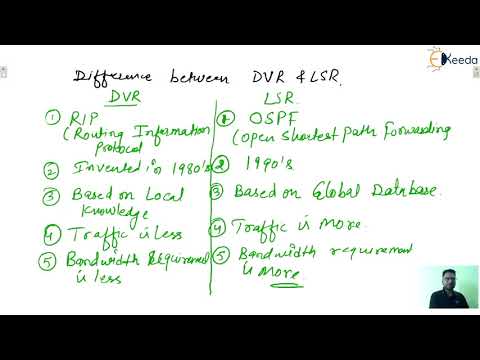 Keeda
Difference between DVR & LSR.
DVR
① RIP
(Routing Information
Protocol
② Invented in 1980's
③ Based on Local
Knowledge
④ Traffic is less
⑤ Bandwidth Requirement
is less
LSR.
① OSPF
(Open Shortest Path Forwarding
② 1990's
③ Based on Global Database.
④ Traffic is More.
⑤ Bandwidth requirement
is More.